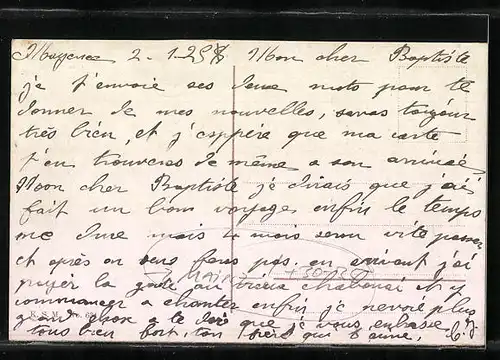 Mayence 2-1-25 Mon cher Baptiste
je t'envoie ses deux mots pour te
donner de mes nouvelles, toujour
très bien, et j'espère que ma carte
t'en trouveras de même a son arrivée
Mon cher Baptiste je dirais que j'ai
fait un bon voyage, enfin le temps
me dure mais 4 mois sera vite passer
et après on sera pas. en arrivant j'ai
payer la goute au vieux et y
a chanter enfin je plus
grand chose a te dire que je vous embrase
tous bien fort, ton frère qui t'aime,